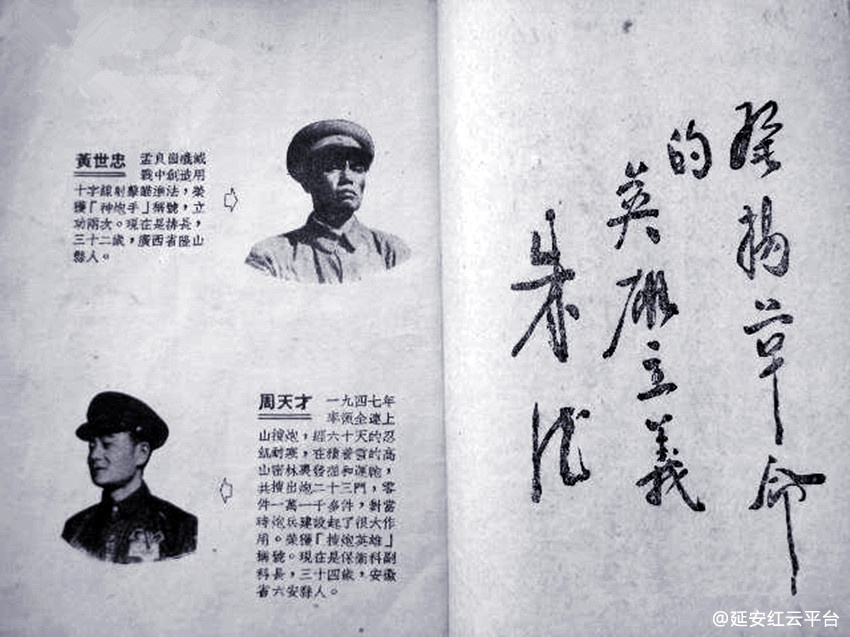 黃世忠 孟良崮殲滅
戰中創造用
十字線射擊瞄準法，榮
獲「神炮手」稱號，立
功兩次。現在是排長，
三十二歲，廣西省隆山
縣人。
周天才 一九四七年
率領全連上
山搜炮，經六十天的忍
飢耐寒，在積著雪的高
山密林裏發掘和運輸，
共搜出炮二十三門，零
件一萬一千多件，對當
時炮兵建設起了很大作
用。榮獲「搜炮英雄」
稱號。現在是保衛科副
科長，三十四歲，安徽
省六安縣人。
發揚革命
的英雄主義
朱德
@延安红云平台